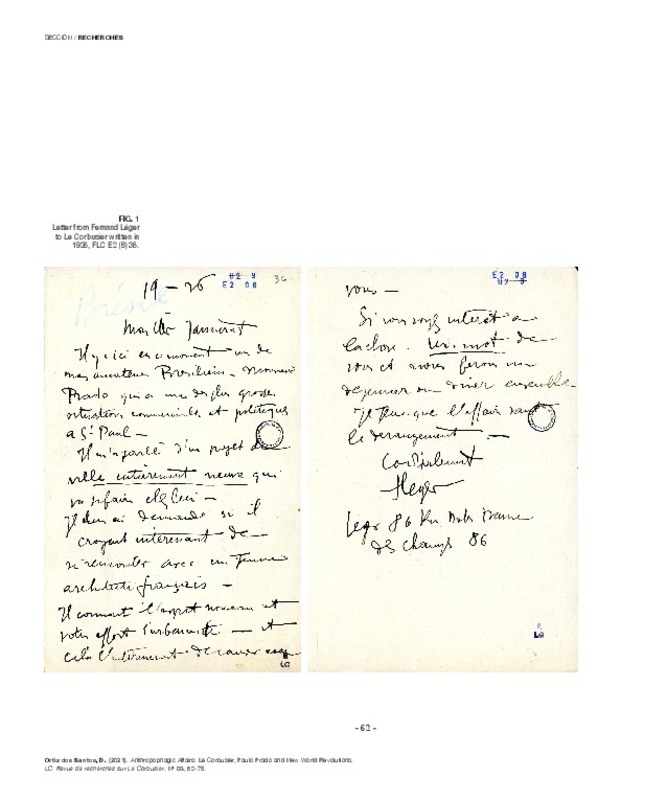 SECCIÓN / RECHERCHES
FIG. 1
Letter from Fernand Léger
to Le Corbusier written in
1926, FLC E2 (8) 36.
19 – 26
E2 08
36
Brésil
Mon cher Jeanneret
Il y a ici en ce moment un de
mes amateurs Brésiliens – Monsieur
Prado qui a une des plus grosses
situations commerciales et politiques
a St Paul –
Il m'a parlé d'un projet de
ville entièrement neuve qui
va se faire chez lui –
Je lui ai demandé si il
croyait intéressant de
se rencontrer avec un
architecte français –
Il connait l'esprit nouveau et
votre effort d'urbaniste – et
cela l'intéresserait de causer avec
LG
E2 08
vous –
Si vous voyez intérêt a
la chose – Un mot de
vous et nous ferons un
dejeuner ou diner ensemble
Je pense que l'affaire vaut
le derangement –
Cordialement
FLeger
Leger 86 Rue Notre Dame
des Champs 86
LG
- 62 -
Ortiz dos Santos, D. (2021). Anthropophagic Affairs: Le Corbusier, Paulo Prado and New World Revolutions.
LC. Revue de recherches sur Le Corbusier. Nº 03, 60-78.